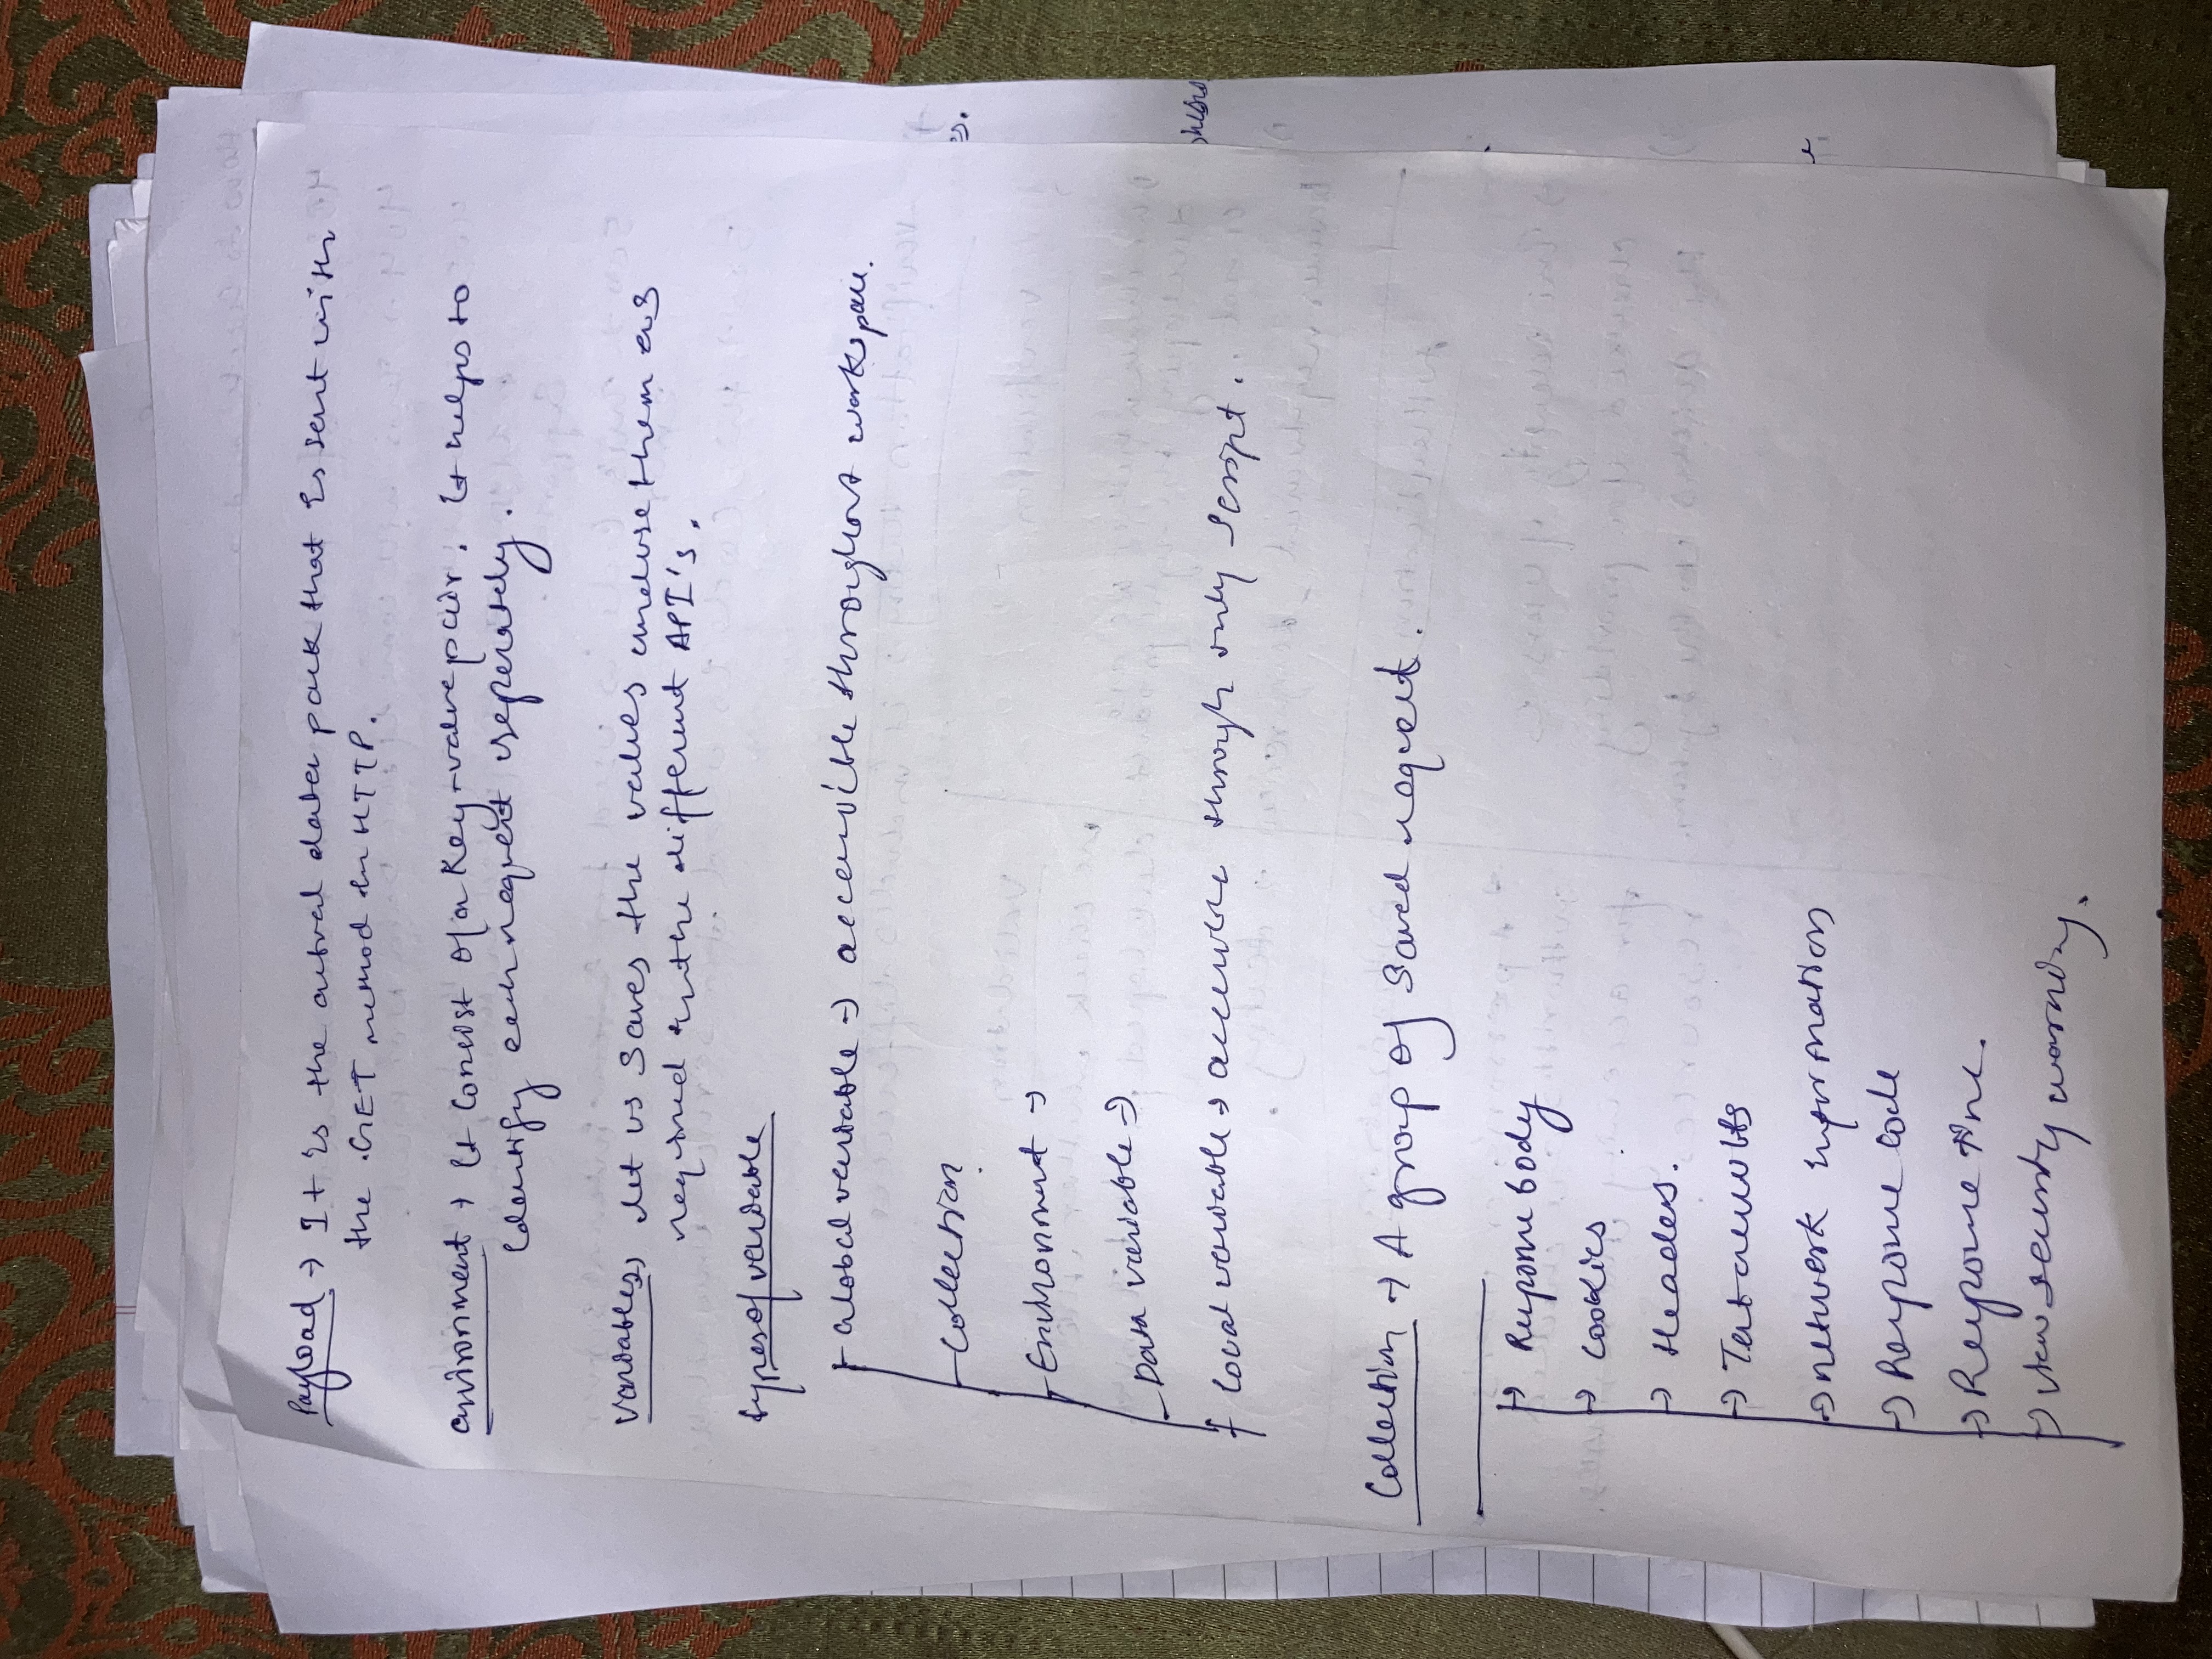 Payload → It is the actual data pack that is sent with
the GET method in HTTP.
environment → It consist of a key-value pair. It helps to
identify each request seperately.
Variables → let us saves the values and use them as
required in the different API's.
types of variable
Global variable → accessible throughout workspace.
Collection
Environment →
Data variable →
local variable → accessible through only script.
Collection → A group of saved request.
→ Response body
→ cookies
→ Headers.
→ Test results
→ network information
→ Response code
→ Response time.
→ view security warning.